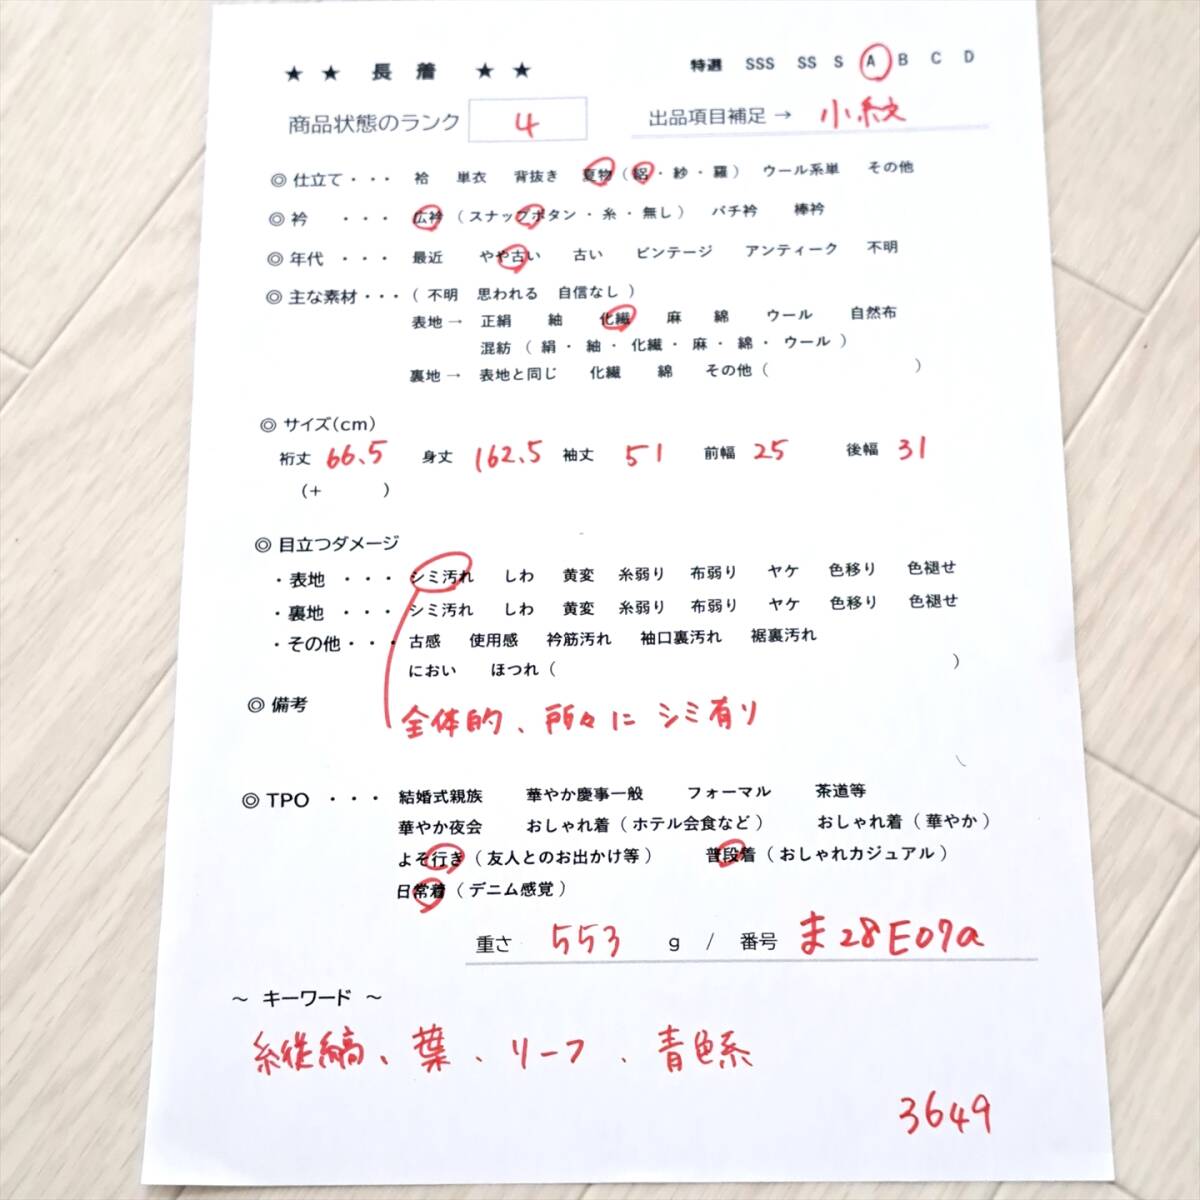 ★ ★ 長 着 ★ ★
特選 SSS SS S A B C D
商品状態のランク 4 出品項目補足 → 小紋
◎ 仕立て・・・ 袷 単衣 背抜き 夏物（絽・紗・羅） ウール系単 その他
◎ 衿 ・・・ 広衿（スナップボタン・糸・無し） バチ衿 棒衿
◎ 年代 ・・・ 最近 やや古い 古い ビンテージ アンティーク 不明
◎ 主な素材・・・（不明 思われる 自信なし）
表地→ 正絹 紬 化繊 麻 綿 ウール 自然布
混紡（絹・紬・化繊・麻・綿・ウール）
裏地→ 表地と同じ 化繊 綿 その他（ ）
◎ サイズ(cm)
裄丈 66.5 身丈 162.5 袖丈 51 前幅 25 後幅 31
(+ )
◎ 目立つダメージ
・表地 ・・・ シミ汚れ しわ 黄変 糸弱り 布弱り ヤケ 色移り 色褪せ
・裏地 ・・・ シミ汚れ しわ 黄変 糸弱り 布弱り ヤケ 色移り 色褪せ
・その他・・・ 古感 使用感 衿筋汚れ 袖口裏汚れ 裾裏汚れ
におい ほつれ（ ）
◎ 備考
全体的、所々に シミ有り
◎ TPO ・・・ 結婚式親族 華やか慶事一般 フォーマル 茶道等
華やか夜会 おしゃれ着（ホテル会食など） おしゃれ着（華やか）
よそ行き（友人とのお出かけ等） 普段着（おしゃれカジュアル）
日常着（デニム感覚）
重さ 553 g / 番号 ま28E07a
～ キーワード ～
縦縞、葉、リーフ、青色系
3649